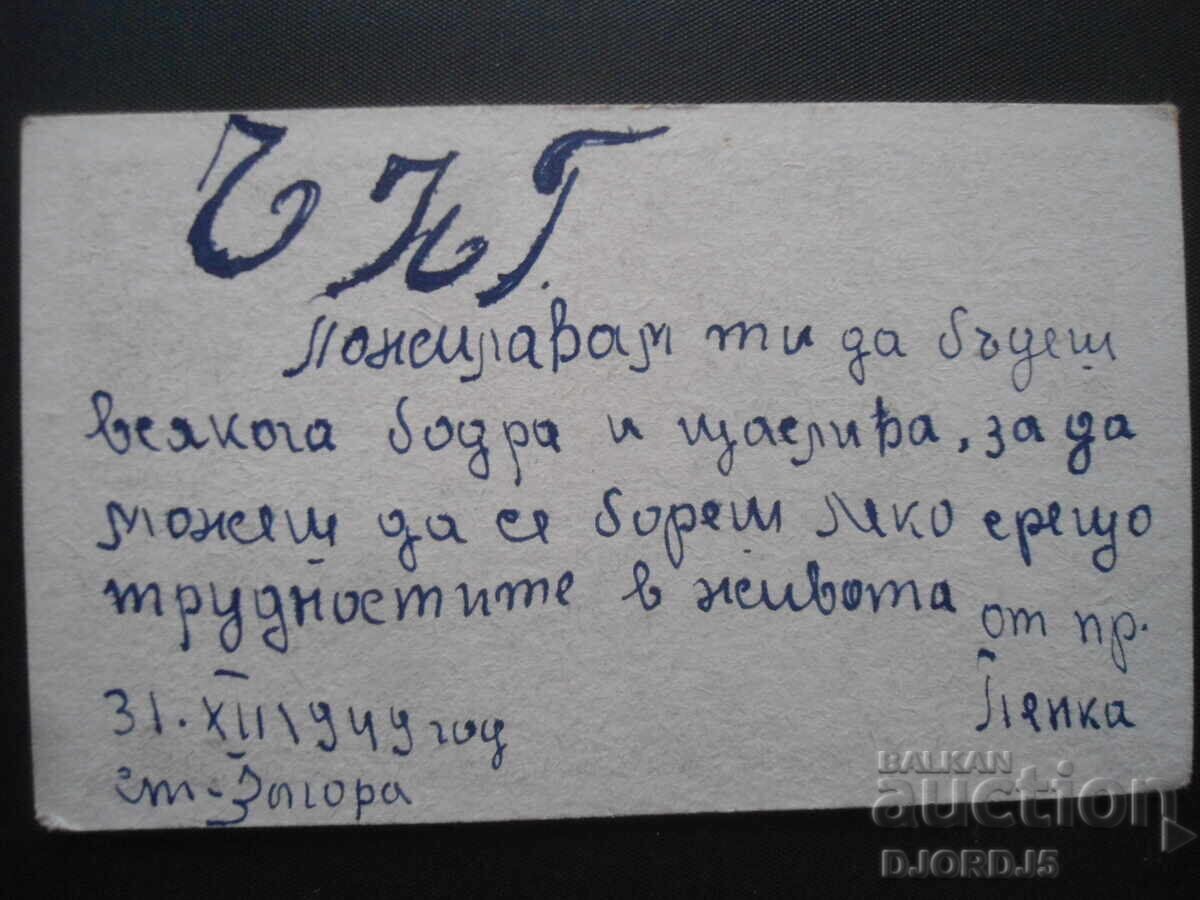 Ч Н Г.
Пожилавам ти да бъдеш
всякога бодра и щаслива, за да
можеш да се бореш леко срещо
трудностите в живота
от пр.
Пенка
31. XII 1949 год
ст-Загора
BALKAN
auction
DJORDJ5